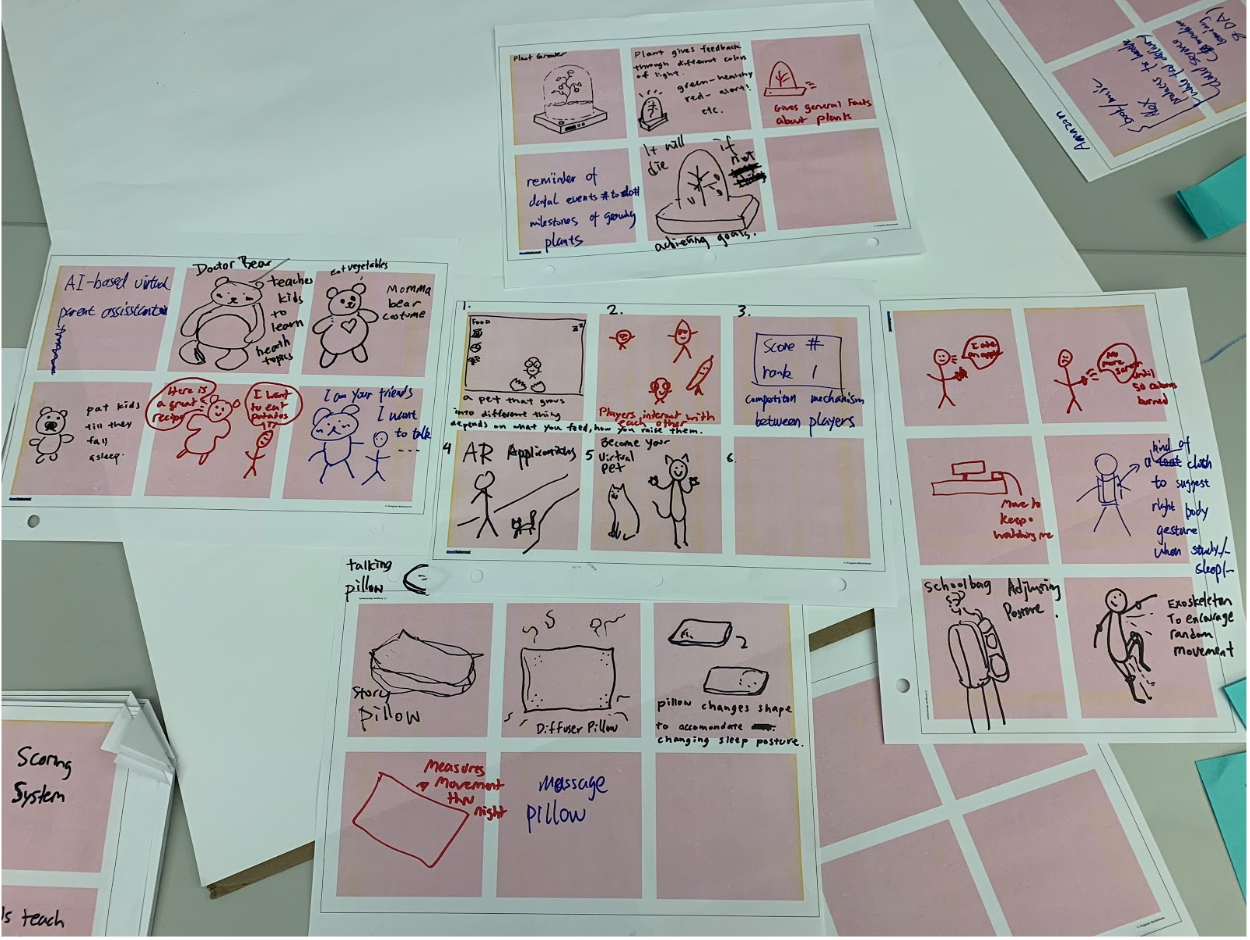 Plant Grower
Plant gives feedback
through different colors
of light.
green - healthy
red - alert!
etc.
Gives general facts
about plants
reminder of
milestones of growing
plants
It will
die
if
not
achieving goals.
Amazon
AI-based virtual
parent
Doctor Bear
teaches
kids
to
learn
health
topics
Eat vegetables
Momma
bear
costume
pat kids
till they
fall
asleep.
Here is
a great
recipe
I want
to eat
potatos
I am your friends
I want
to talk
----
1.
Food
zz
a pet that grows
into different thing
depends on what you feed, how you raise them.
2.
Players interact with
each other
3.
Score #
rank 1
compition mechanism
between players
4
AR Applications
5
Become your
virtual
pet
6.
I ate
an apple
No
more
screen
until
50 calories
burned
Move to
keep
watching me
kind of
a cloth
to suggest
right body
gesture
when study/~
sleep/~
schoolbag Adjusting
Posture.
Exoskeleton
To encourage
random
movement
talking
pillow
Story
pillow
Diffuser Pillow
pillow changes shape
to accomondate
changing sleep posture.
Measures
Movement
thru
night
massage
pillow
Scoring
System
ls teach